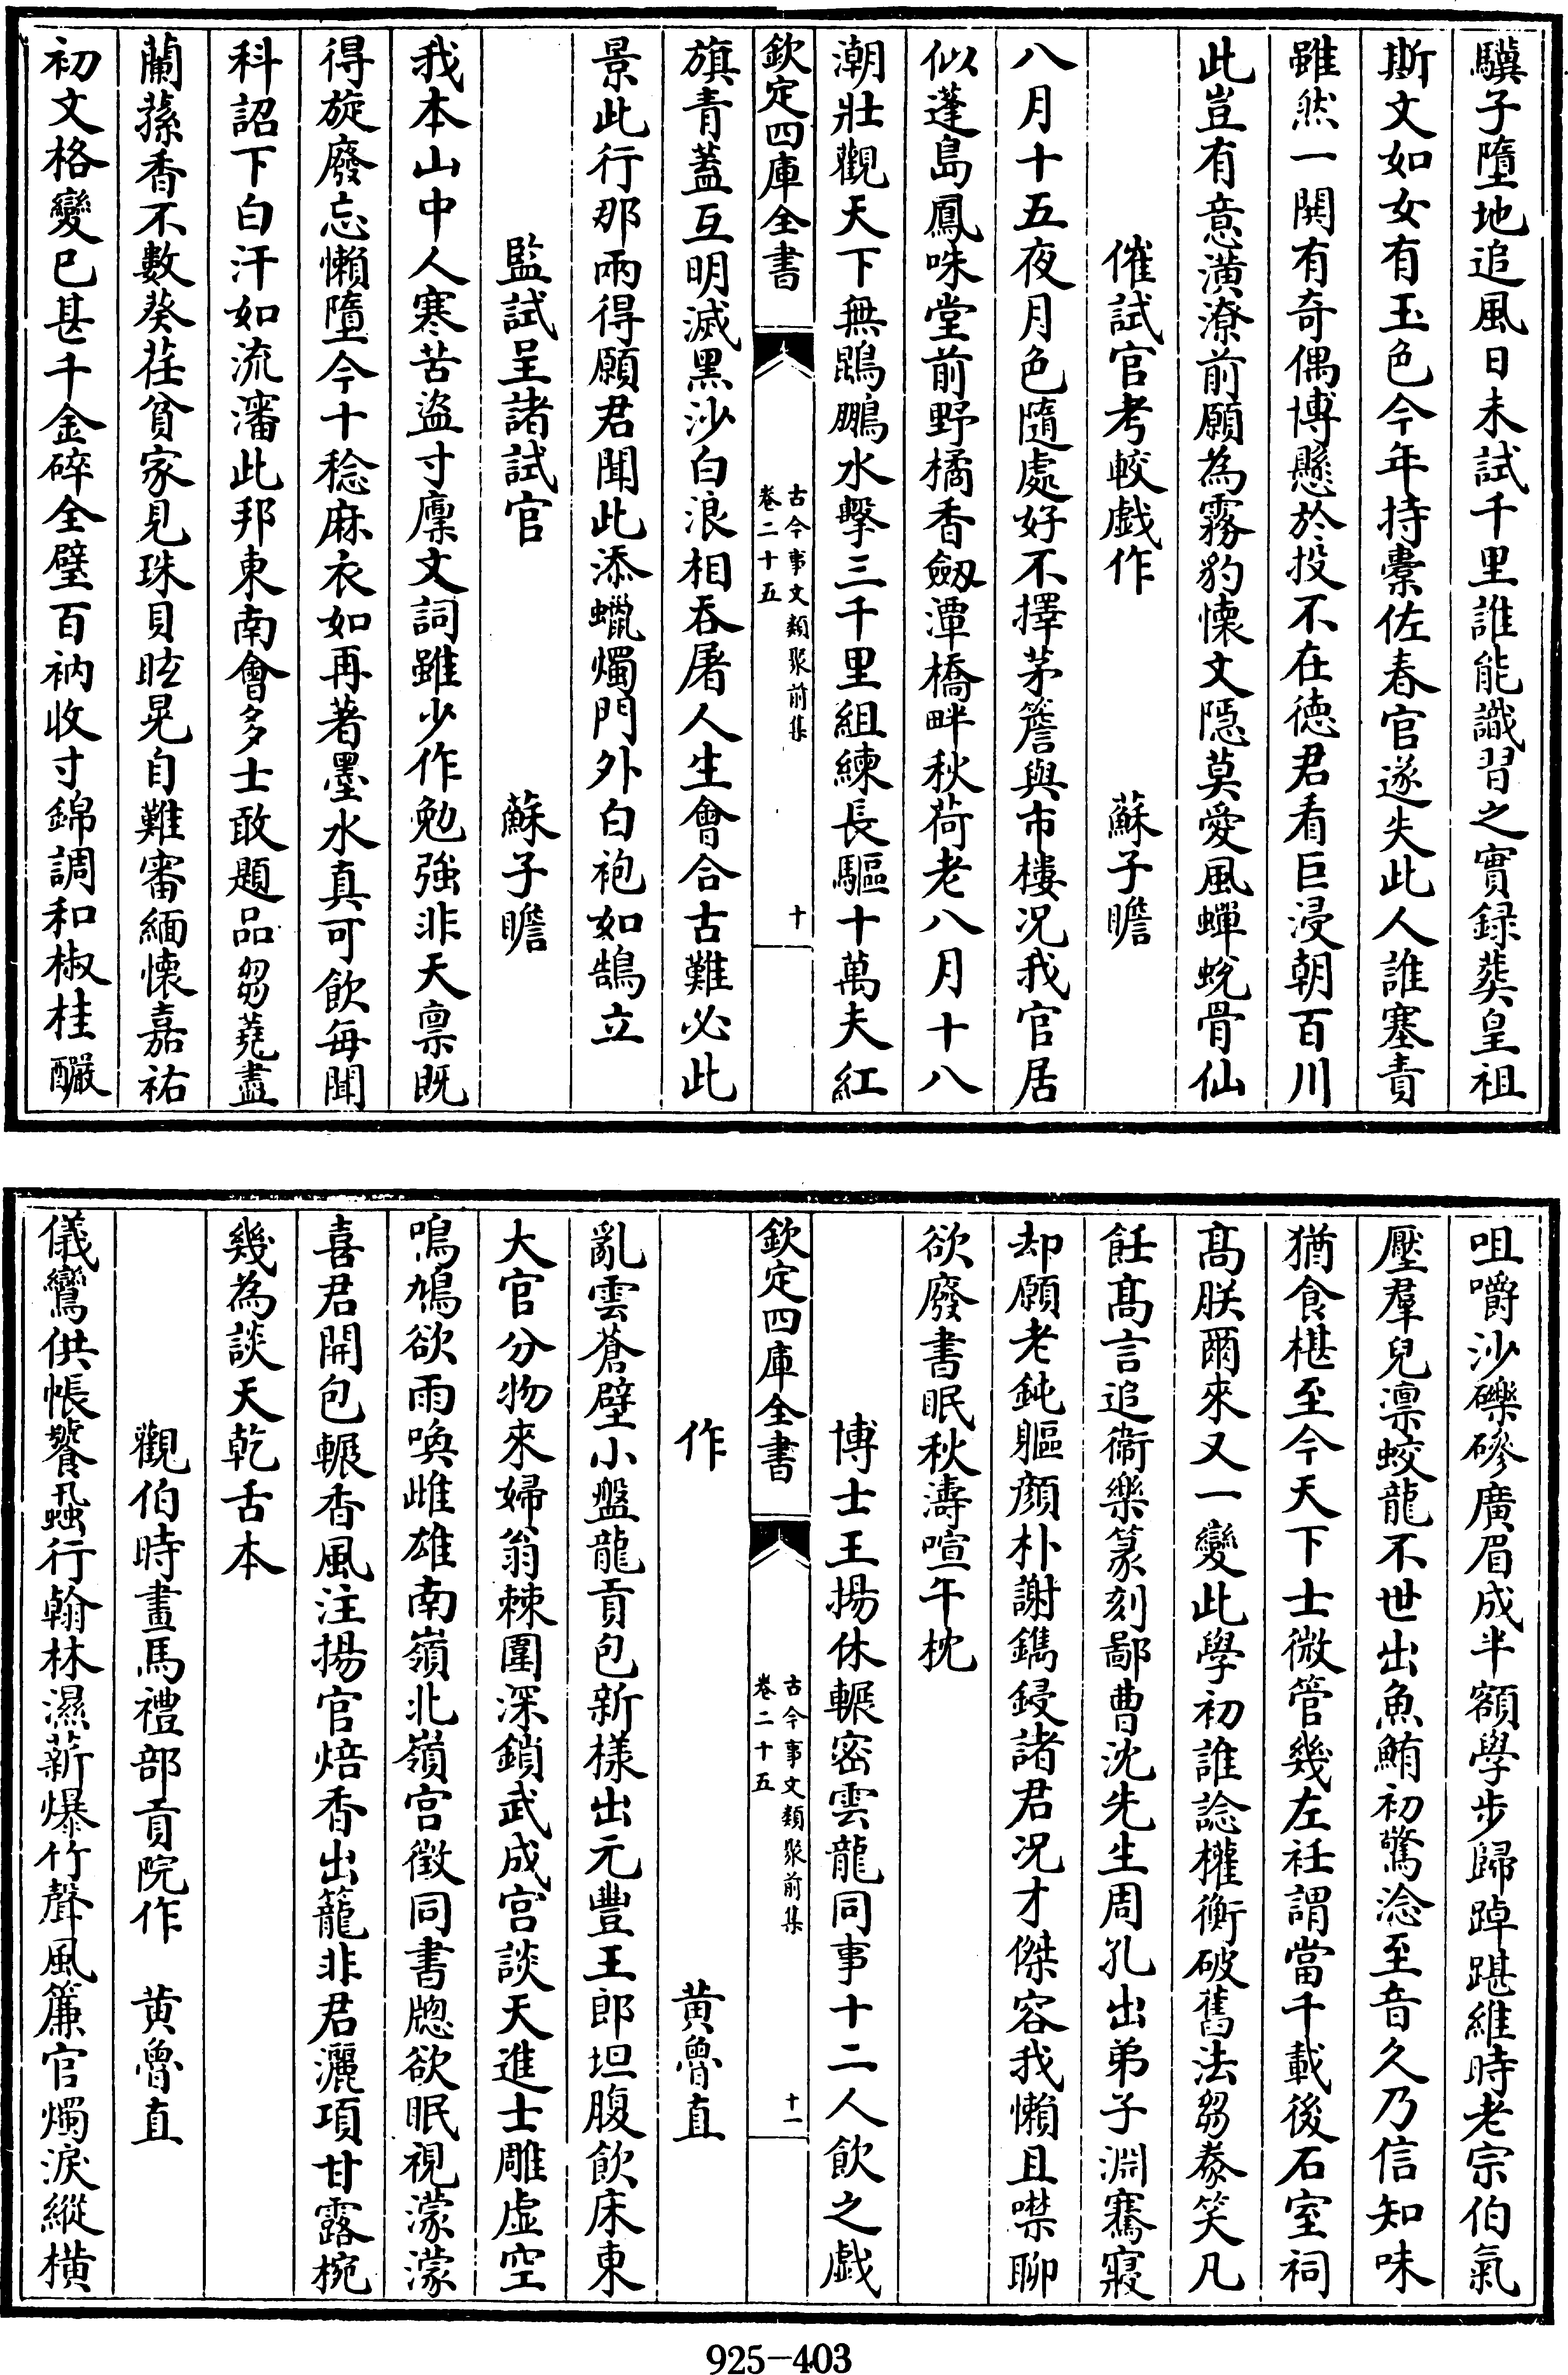 驥子墮地追風日未試千里誰能識習之實録葬皇祖
斯文如女有玉色今年持橐佐春官遂失此人誰塞責
雖然一鬨有奇偶博懸於投不在徳君看巨浸朝百川
此豈有意潢潦前願為霧豹懷文隠莫愛風蟬蛻骨仙
催試官考較戯作 蘇子瞻
八月十五夜月色隨處好不擇茅簷與市樓况我官居
似蓬島鳳咮堂前野橘香劔潭橋畔秋荷老八月十八
潮壯觀天下無鵾鵬水擊三千里組練長驅十萬夫紅
欽定四庫全書 古今事文類聚前集 卷二十五 十
旗青蓋互明滅黑沙白浪相吞屠人生會合古難必此
景此行那兩得願君聞此添蠟燭門外白袍如鵠立
監試呈諸試官 蘇子瞻
我本山中人寒苦盗寸廩文詞雖少作勉強非天禀既
得旋廢忘懶墮今十稔麻衣如再著墨水真可飲每聞
科詔下白汗如流瀋此邦東南會多士敢題品芻蕘盡
蘭蓀香不數葵荏貧家見珠貝眩晃自難審緬懷嘉祐
初文格變已甚千金碎全璧百衲收寸錦調和椒桂釅
咀嚼沙礫磣廣眉成半額學步歸踔踸維時老宗伯氣
壓羣兒凛蛟龍不世出魚鮪初驚淰至音久乃信知味
猶食椹至今天下士微管幾左衽謂當千載後石室祠
髙朕爾來又一變此學初誰諗權衡破舊法芻豢笑凡
飪髙言追衞樂篆刻鄙曹沈先生周孔出弟子淵騫寢
却願老鈍軀顔朴謝鐫鋟諸君况才傑容我懶且噤聊
欲廢書眠秋濤喧午枕
博士王揚休輾密雲龍同事十二人飲之戯
欽定四庫全書 古今事文類聚前集 卷二十五 十一
作 黄魯直
亂雲蒼壁小盤龍貢包新樣出元豐王郎坦腹飲床東
大官分物來婦翁棘圍深鎖武成宫談天進士雕虚空
鳴鳩欲雨喚雌雄南嶺北嶺宫徴同書牎欲眠視濛濛
喜君開包輾香風注揚官焙香出籠非君灑項甘露椀
幾為談天乾舌本
觀伯時畫馬禮部貢院作 黄魯直
儀鸞供帳饕蝨行翰林濕薪爆竹聲風簾官燭淚縱横
925-403